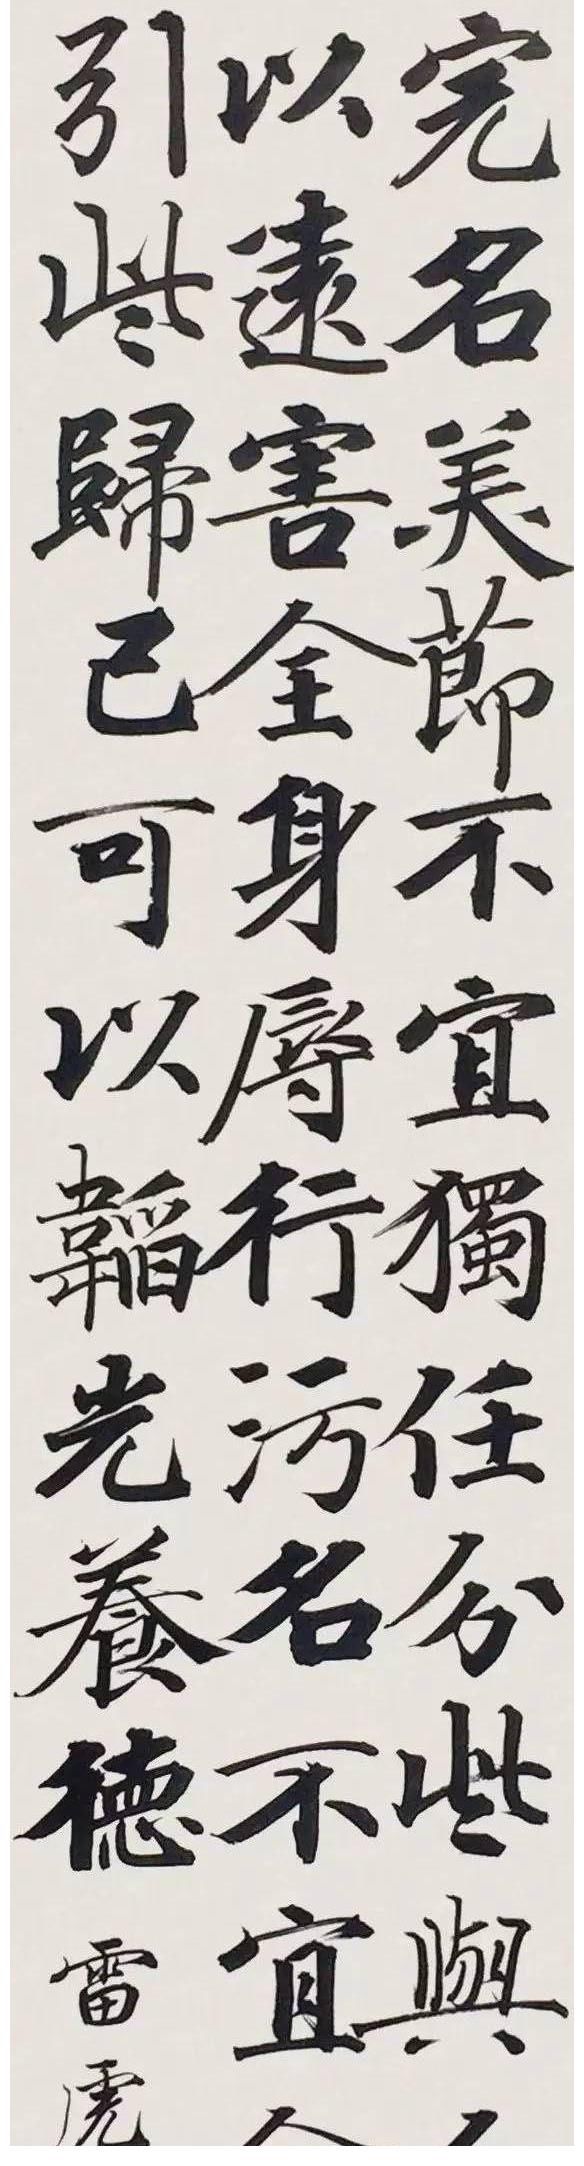 完名美節不宜獨任分些與
以遠害全身辱行污名不宜
引些歸己可以韜光養德
雷虎